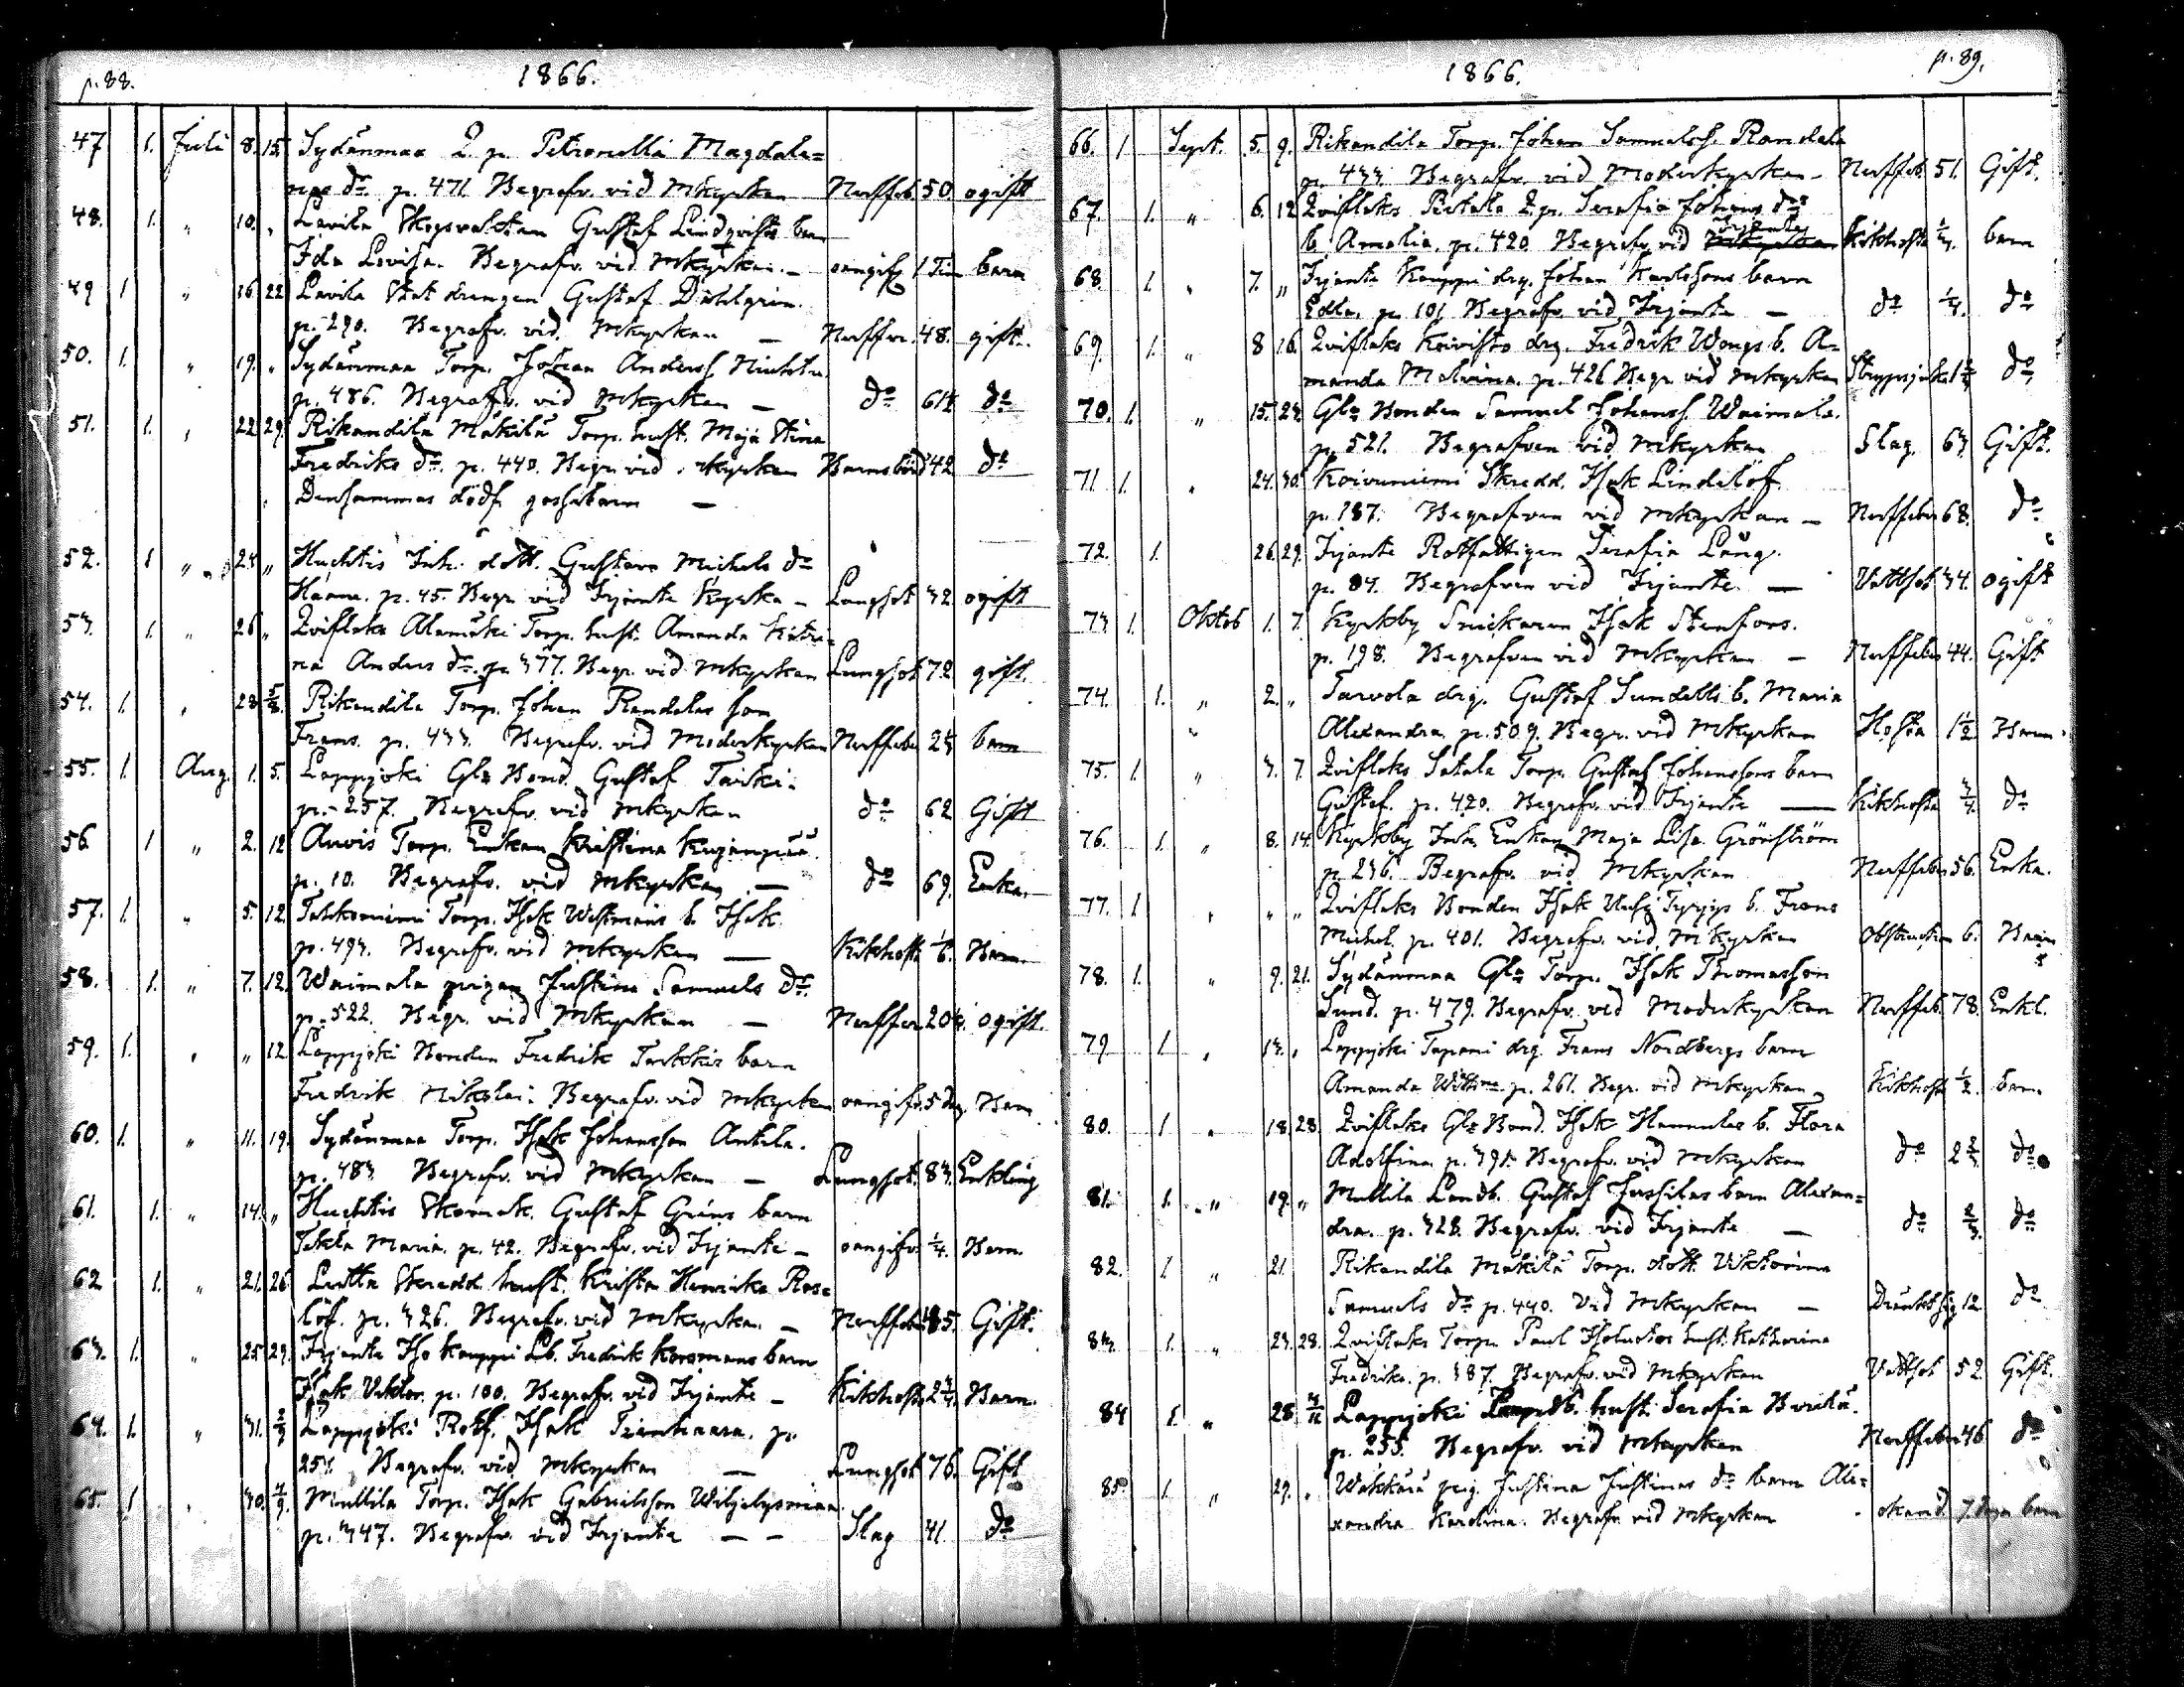 p. 88. 1866.
47 1. Juli 8. 15. Sydänmaa Q. p. Petronella Magdale=
na dr p. 471. Begrafv. vid Mkyrkan Nerffeb. 50 ogift
48. 1. „ 10. „ Lavila Skogvaktan Gustaf Lindqvists barn
Ida Lovisa. Begrafv. vid Mkyrkan. — oangifv. 1 Tim barn
49 1 „ 16 22 Lavila Stat drengen Gustaf Dahlgrén.
p. 290. Begrafv. vid Mkyrkan — Nerffeb. 48. gift.
50. 1. „ 19. „ Sydänmaa Torp. Johan Anderss.
p. 486. Begrafv. vid Mkyrkan — do 61 do
51. 1. „ 22 29. Rikandila Mäkilä Torp. hust. Maja Stina
Fredriks dr. p. 440. Begr. vid Mkyrkan Barnsbörd 42 do
Densammas dödf. gossebarn —
52. 1 „ 24 „ Huchtis Inh. dott. Gustava Michels dr
p. 45. Begr. vid Irjante Kyrka — Lungsot 32 ogift
53. 1. „ 26 „ Zviflaks Alamäki Torp. hust. Amanda Katri=
na Anders dr. p. 377. Begr. vid Mkyrkan Lungsot 72 gift.
54. 1. „ 28 5/8. Rikandila Torp. Johan Randalas son
Frans. p. 433. Begrafv. vid Moderkyrkan Nerffeber 23 barn
55. 1. Aug. 1. 5. Lappijoki Gle Bond. Gustaf Taiki.
p. 257. Begrafv. vid Mkyrkan do 62 Gift
56 1 „ 2. 12 Auvis Torp. Enkan Kristina Kujanpää.
p. 10. Begrafv. vid Mkyrkan — do 69. Enka.
57. 1. „ 5. 12. Tahkoniemi Torp. Isak Westmans b. Isak
p. 493. Begrafv. vid Mkyrkan — Kikhosta 1/6. Barn.
58. 1. „ 7. 12. Waimala pigan Justina Samuels dr.
p. 522. Begr. vid Mkyrkan — Nerffeb. 20 ogift.
59. 1. „ „ 12 Lappijoki Bonden Fredrik barn
Fredrik Nikolai. Begrafv. vid Mkyrkan oangifv. 5 dag. Barn
60. 1. „ 11. 19. Sydänmaa Torp. Isak Johansson Antila.
p. 483 Begrafv. vid Mkyrkan — Lungsot. 83. Enkling
61. 1. „ 14. „ Huchtis Skomak. Gustaf Gröns barn
Tekla Maria. p. 42. Begrafv. vid Irjante — oangifv. 1/4. Barn.
62 1. „ 21. 26 Lutta Skredd. hust. Kristina Henrika Ros=
löf. p. 326. Begrafv. vid Mkyrkan — Nerffeber 35. Gift.
63. 1. „ 25 29. Irjante Iso Kauppi Lb. Fredrik Korsmans barn
Isak Viktor. p. 100. Begrafv. vid Irjante — Kikhosta 2 3/4. Barn.
64. 1. „ 31. 2/9 Lappijoki Rotf. Isak p.
253. Begrafv. vid Mkyrkan — Lungsot 76. Gift
65. 1 „ 30. 4/9. Mullila Torp. Isak Gabrielsson
p. 347. Begrafv. vid Irjante — — Slag 41. do
1866. p. 89.
66. 1 Sept. 5. 9. Rikandila Torp. Johan Samuelss. Randala
p. 433. Begrafv. vid Moderkyrkan — Nerffeb. 51. Gift.
67. 1. „ 6. 12 Zviflaks Q. p. Serafia Johans dr
b. Amalia. p. 420. Begrafv. vid Irjante Kikhosta barn
68. 1. „ 7. „ Irjante Kauppi drg. Johan Karlssons barn
Edla. p. 101 Begrafv. vid Irjante — do 1/4. do
69. 1. „ 8 16. Zviflaks Koivisto drg. Fredrik Wengs b. A=
manda Malvina. p. 426 Begr. vid Mkyrkan Strypsjuka do
70. 1. „ 15. 23. Gle Bonden Samuel Johanss. Waimala.
p. 521. Begrafven vid Mkyrkan Slag. 63 Gift.
71 1. „ 24. 30. Koivuniemi Skredd. Isak Lindelöf
p. 187. Begrafven vid Mkyrkan — Nerffeber 68. do
72. 1. 26. 29. Irjante Rotfattigen Serafia Lång.
p. 84. Begrafven vid Irjante — Vattsot 34. ogift
73 1. Oktob 1. 7. Kyrkby Snickaren Isak Stenfors.
p. 198. Begrafven vid Mkyrkan — Nerffeber 44. Gift
74. 1. „ 2. „ Tarvola drg. Gustaf Sundells b. Maria
Alexandra. p. 509. Begr. vid Mkyrkan Hosta 1 1/2 Barn.
75. 1. „ 3. 7. Zviflaks Satala Torp. Gustaf Johanssons barn
Gustaf. p. 420. Begrafv. vid Irjante — Kikhosta 3/4. do
76. 1. „ 8. 14. Kyrkby Inh. Enkan Maja Lisa Grönström
p. 236. Begrafv. vid Mkyrkan Nerffeber 56. Enka.
77. 1 „ „ „ Zviflaks Bonden Isak b. Frans
Michel. p. 401. Begrafv. vid Mkyrkan Obstruction 6. Barn
78. 1. „ 9. 21. Sydänmaa Gle Torp. Isak Thomasson
Sund. p. 479. Begrafv. vid Moderkyrkan Nerffeb. 78. Enkl.
79 1 „ 13. „ Lappijoki Tapani drg. Frans Nordbergs barn
Amanda p. 261. Begr. vid Mkyrkan — Kikhosta 1/2. barn.
80. 1 „ 18. 28. Zviflaks Gle Bond. Isak Hannulas b. Flora
Adolfina. p. 391. Begrafv. vid Mkyrkan do 2 2/3 do
81. 1. „ 19. „ Mullila Landb. Gustaf Jussilas barn Alexan=
dra. p. 328. Begrafv. vid Irjante — do 2/3. do
82. 1. „ 21. Rikandila Mäkilä Torp. dott. Viktorina
Samuels dr p. 440. Vid Mkyrkan — 12. do
83. 1. „ 23. 28. Zviflaks Torp. Paul hust. Katharina
Fredrika. p. 387. Begrafv. vid Mkyrkan Vattsot 52. Gift.
84 1. „ 28 4/11 Lappijoki hust. Serafia
p. 255. Begrafv. vid Mkyrkan Nerffeber 46 do
85. 1. „ 29. „ Wäkkärä pig. Justina Justinas dr barn Ale=
xandra Karolina. Begrafv. vid Mkyrkan okänd. 7 Dagar barn